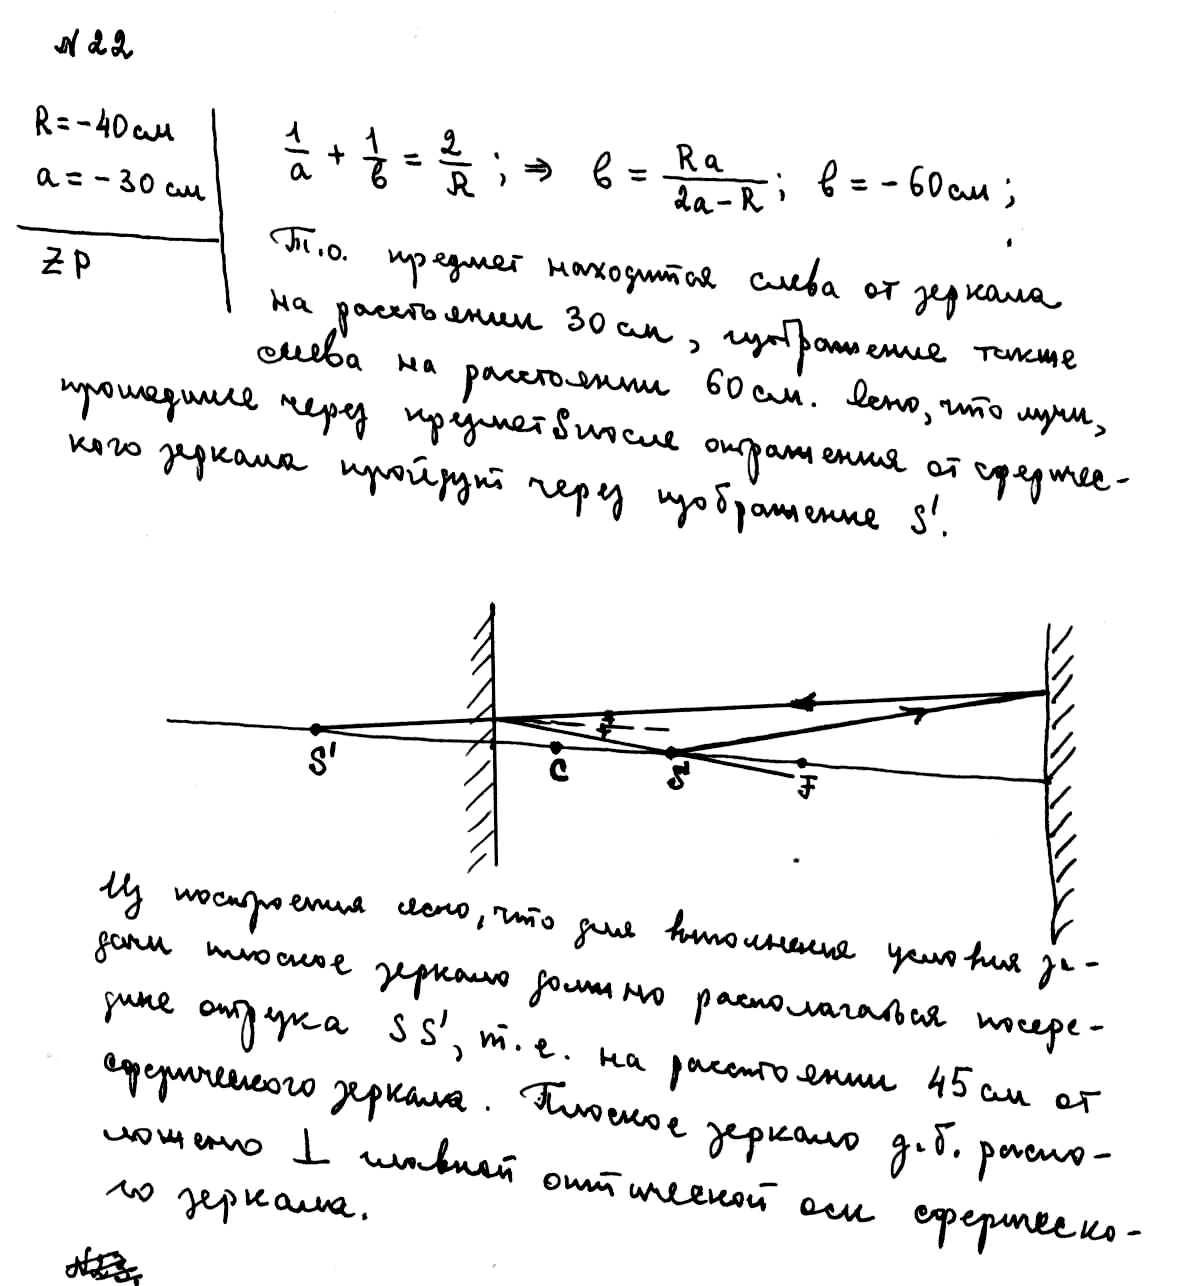 N 22
R = -40 см
a = -30 см
ZP
1/a + 1/b = 2/R ; ⇒ b = Ra/(2a-R) ; b = -60 см ;
Т.о. предмет находится слева от зеркала
на расстоянии 30 см, изображение также
слева на расстоянии 60 см. Ясно, что лучи,
прошедшие через предмет S после отражения от сферичес-
кого зеркала пройдут через изображение S'.
S' C S F
Из построения ясно, что для выполнения условия за-
дачи плоское зеркало должно располагаться посере-
дине отрезка SS', т.е. на расстоянии 45 см от
сферического зеркала. Плоское зеркало д.б. распо-
ложено ⊥ главной оптической оси сферическо-
го зеркала.